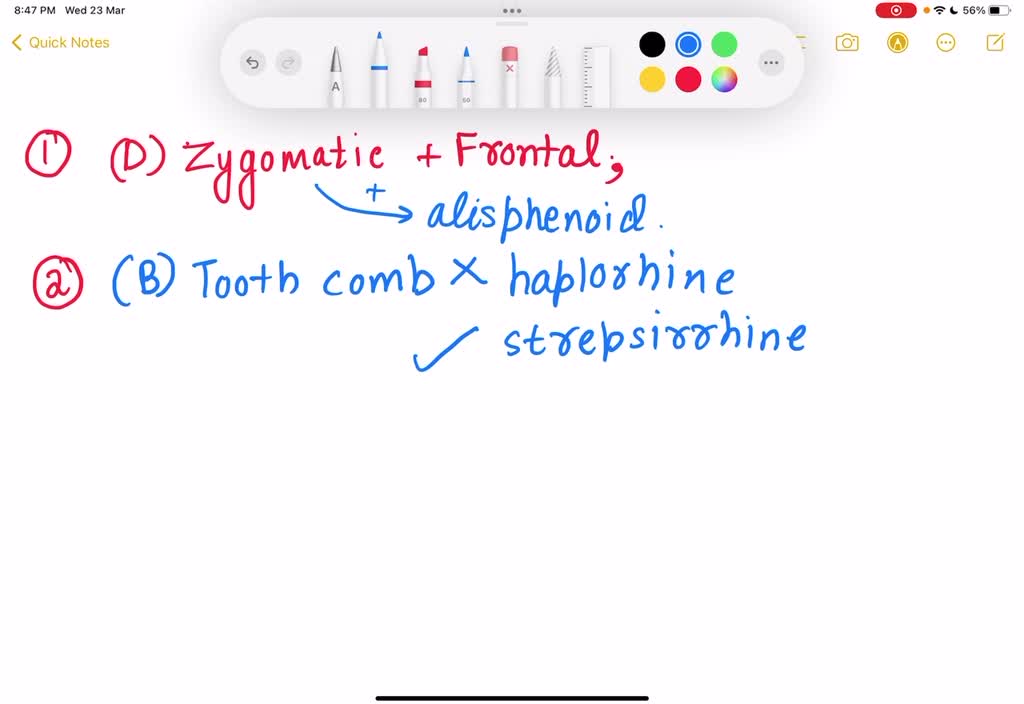 8:47 PM Wed 23 Mar
56%
Quick Notes
A
80
50
A
1 (D) Zygomatic + Frontal;
+
alisphenoid.
2 (B) Tooth comb × haplorhine
✓ strepsirrhine